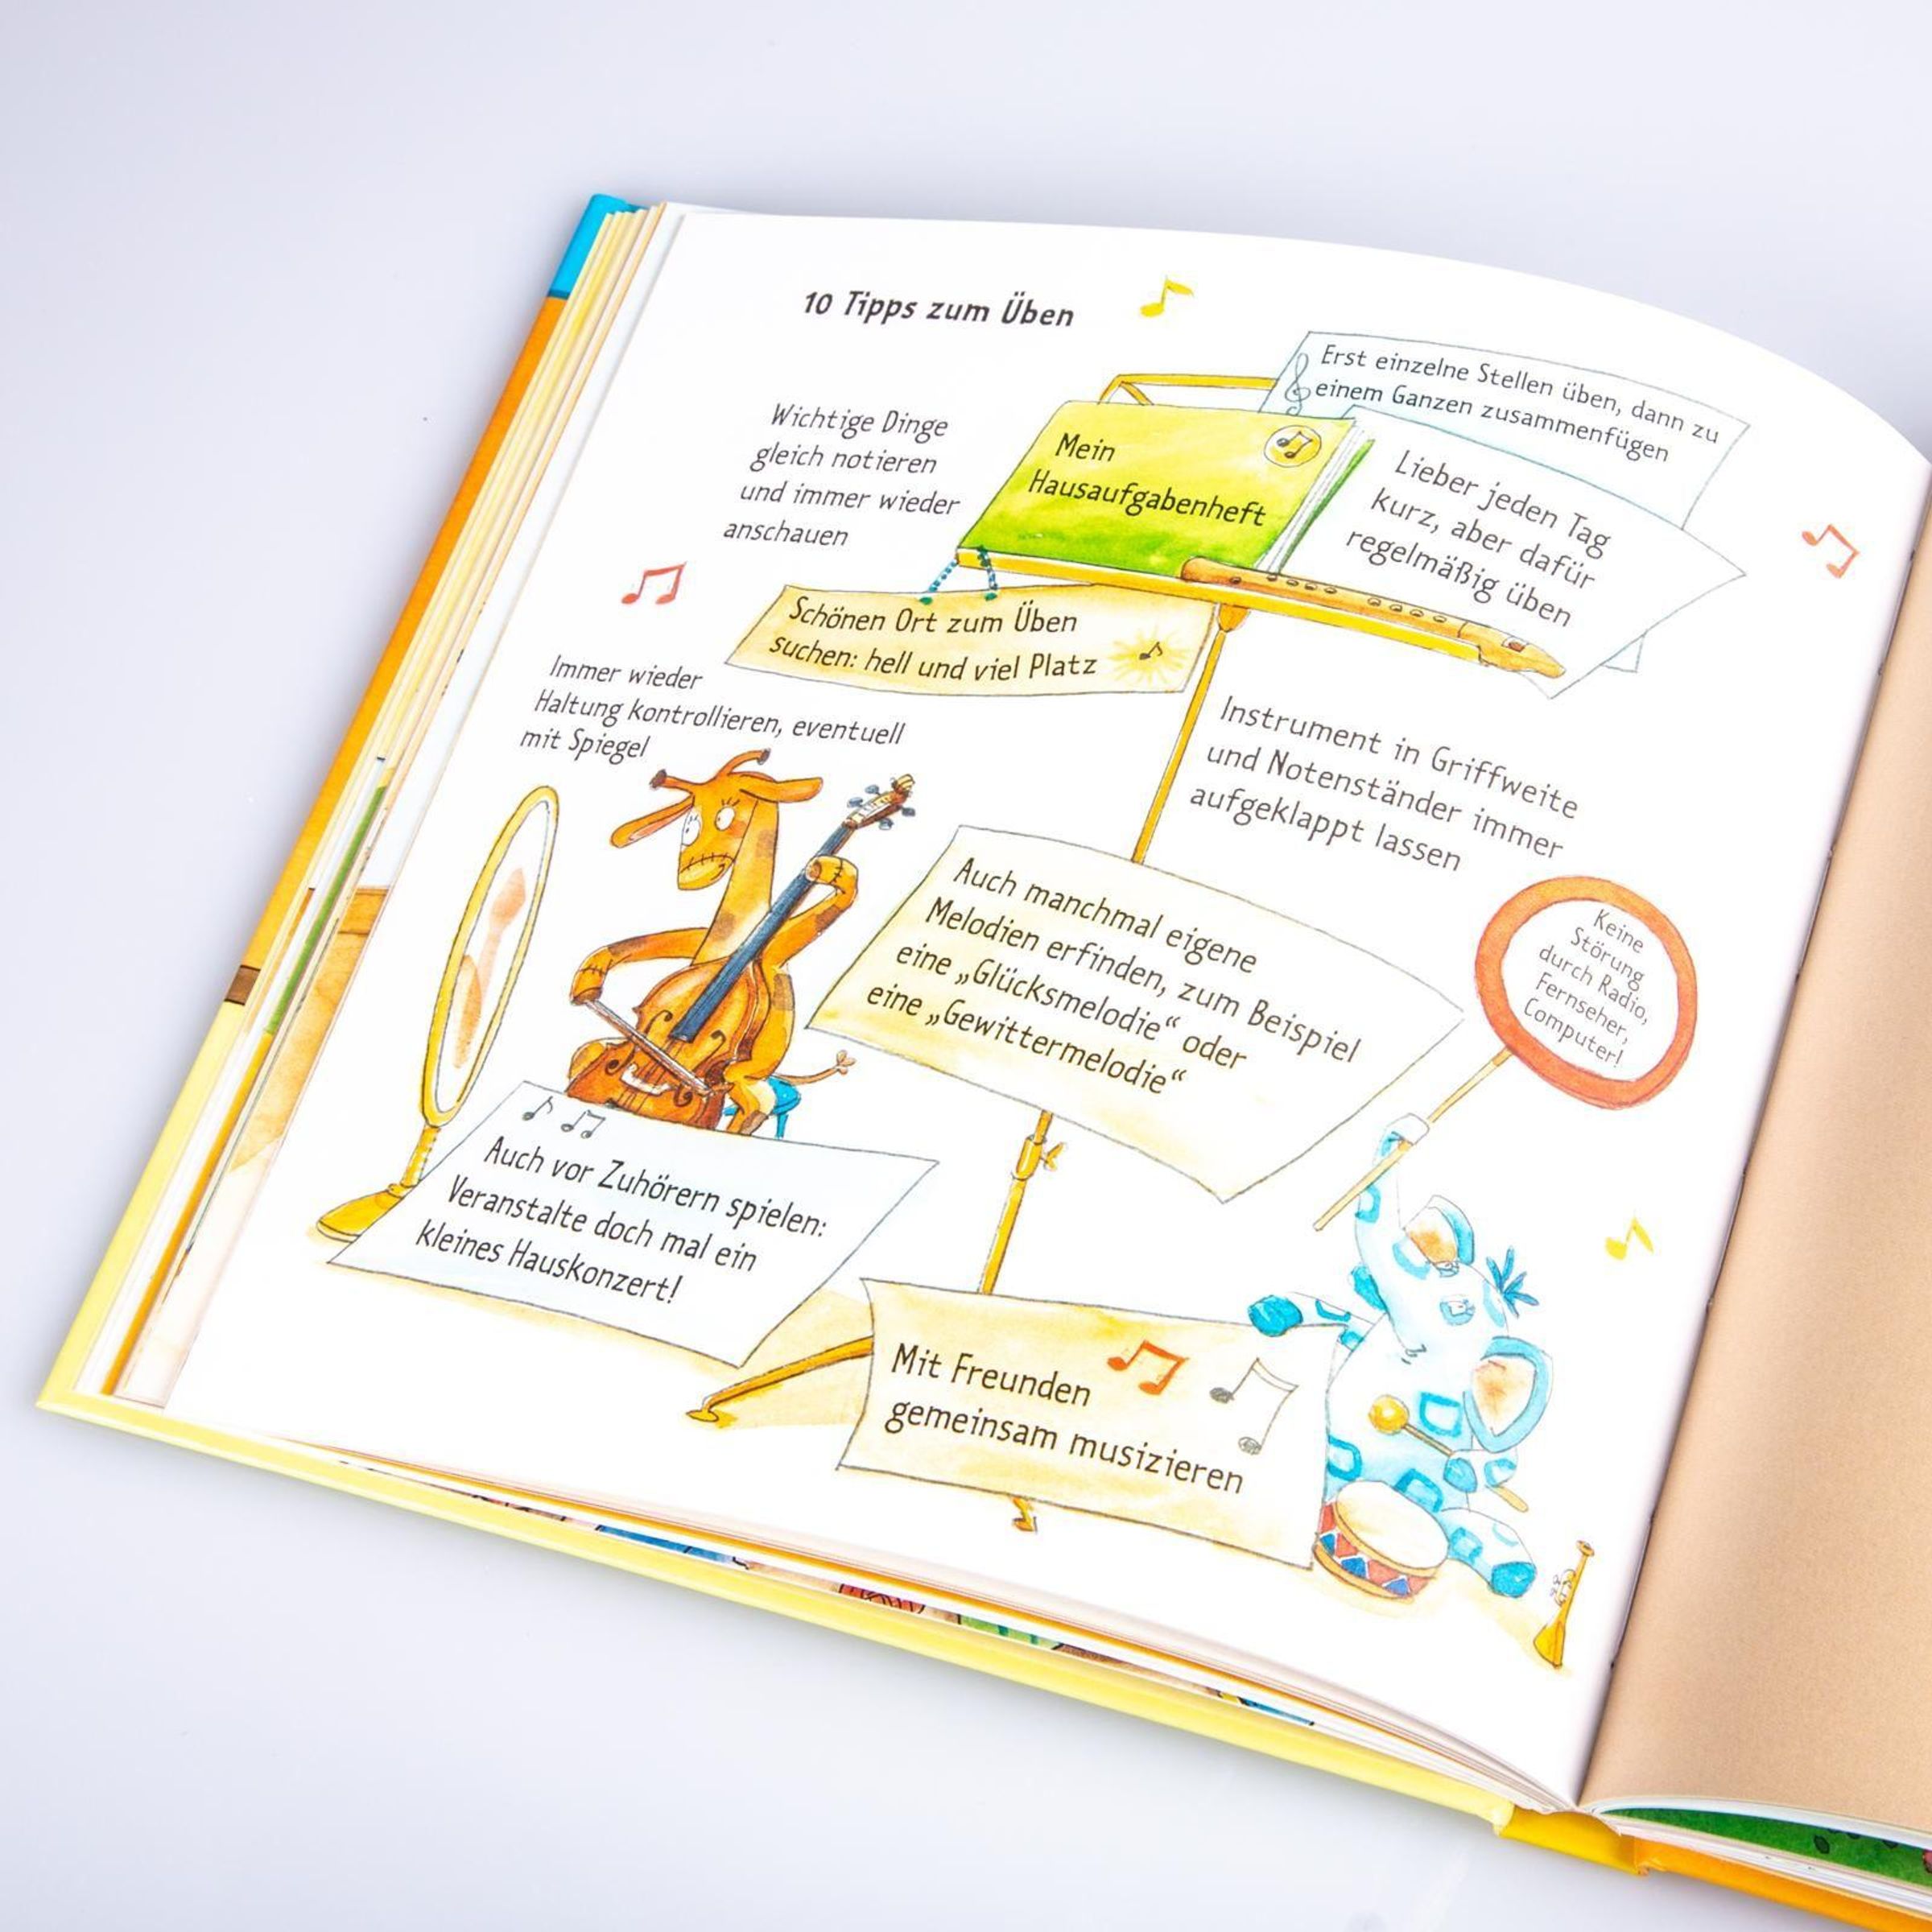 10 Tipps zum Üben
Erst einzelne Stellen üben, dann zu
einem Ganzen zusammenfügen
Wichtige Dinge
gleich notieren
und immer wieder
anschauen
Mein
Hausaufgabenheft
Lieber jeden Tag
kurz, aber dafür
regelmäßig üben
Schönen Ort zum Üben
suchen: hell und viel Platz
Immer wieder
Haltung kontrollieren, eventuell
mit Spiegel
Instrument in Griffweite
und Notenständer immer
aufgeklappt lassen
Auch manchmal eigene
Melodien erfinden, zum Beispiel
eine „Glücksmelodie“ oder
eine „Gewittermelodie“
Keine
Störung
durch Radio,
Fernseher,
Computer!
Auch vor Zuhörern spielen:
Veranstalte doch mal ein
kleines Hauskonzert!
Mit Freunden
gemeinsam musizieren